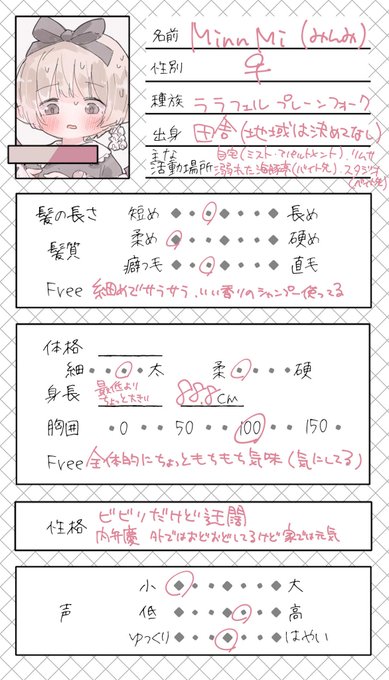 名前 MinnMi(みんみ)
性別 ♀
種族 ララフェル プレーンフォーク
出身 田舎(地域は決めてなし)
主な活動場所 自宅(ミスト・アパルトメント)、リムサ
溺れた海豚亭(バイト先)、スタジ
(バイト先)
髪の長さ 短め 長め
髪質 柔め 硬め
癖っ毛 直毛
Free 細めでサラサラ、いい香りのシャンプー使ってる
体格
細 太 柔 硬
身長 最低より
ちょっと大きい cm
胸囲 0 50 100 150
Free 全体的にちょっともちもち気味(気にしてる)
性格 ビビリだけど迂闊
内弁慶 外ではおどおどしてるけど家では元気
小 大
声 低 高
ゆっくり はやい